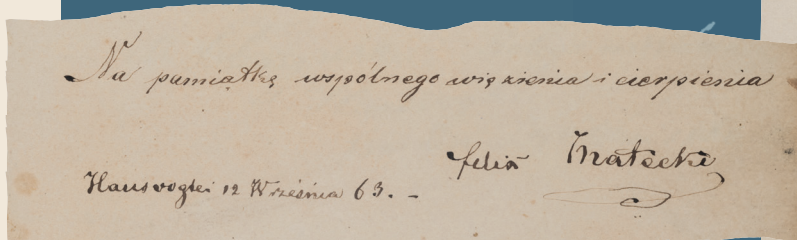 Na pamiątkę wspólnego więzienia i cierpienia
felix
Hausvogtei 12 Września 63. -